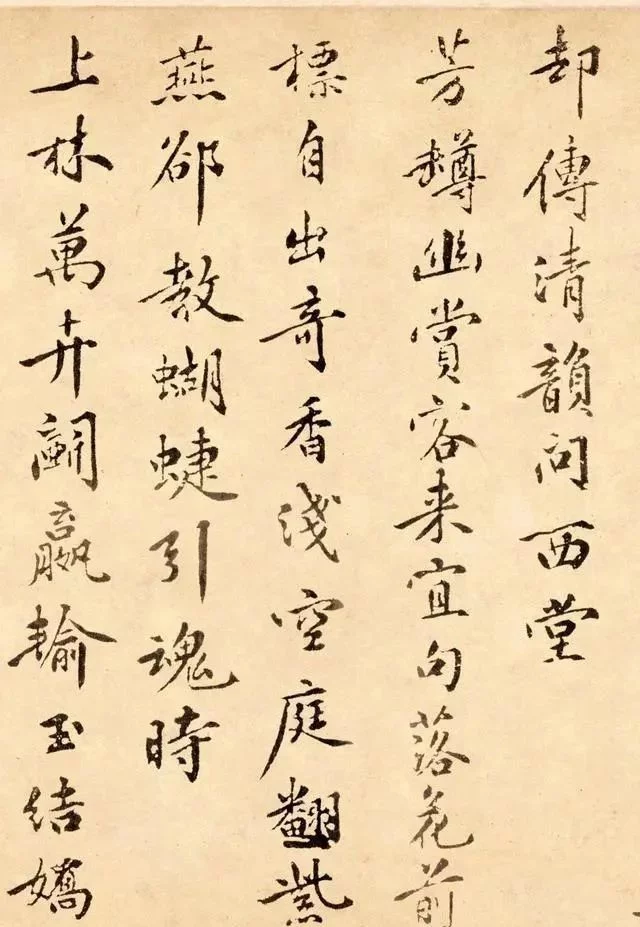 却傳清韻問西堂
芳罇幽賞客来宜句落花前
標自出奇香淺空庭翻紫
燕郤教蝴蜨引魂時
上林萬卉鬭贏輸玉結嬌